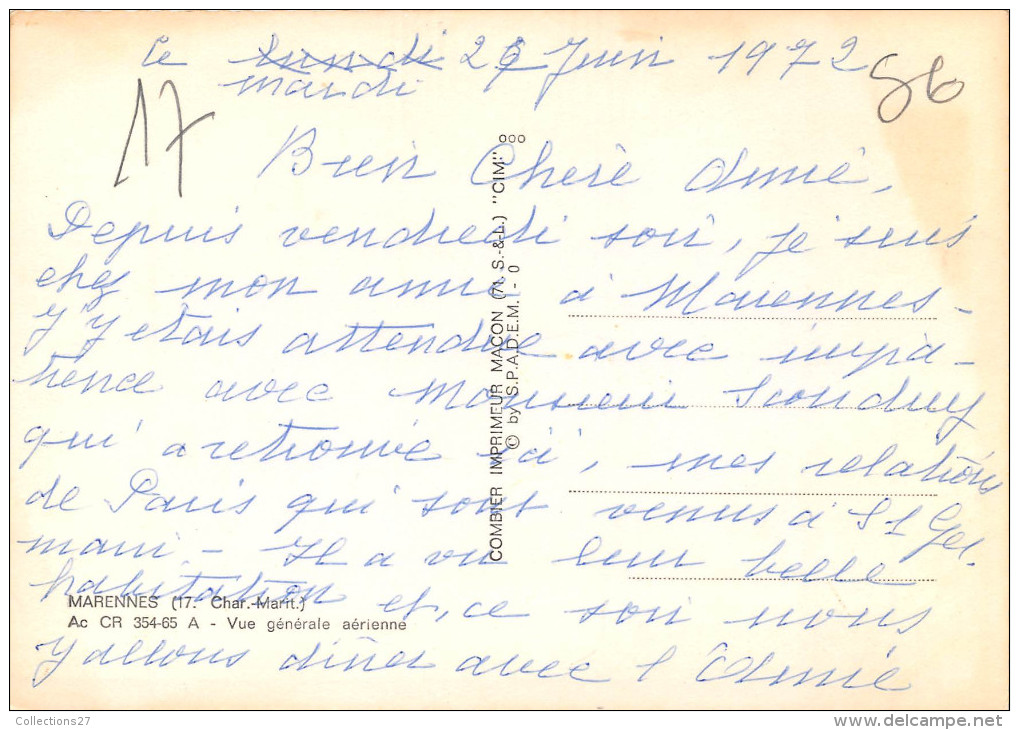 le lundi 26 Juin 1972
mardi
17
86
Bien Chère Amie,
Depuis vendredi soir, je suis
chez mon amie à Marennes -
J'y étais attendue avec impa-
tience avec Monsieur
qui a retrouvé ici, mes relations
de Paris qui sont venus à St Ger-
main - Il a vu leur belle
habitation et, ce soir nous
y allons dîner avec l'Amie
COMBIER IMPRIMEUR MACON (71 S.-&-L.) "CIM"
© by S.P.A.D.E.M. - 0
MARENNES (17. Char.-Marit.)
Ac CR 354-65 A - Vue générale aérienne
Collections27